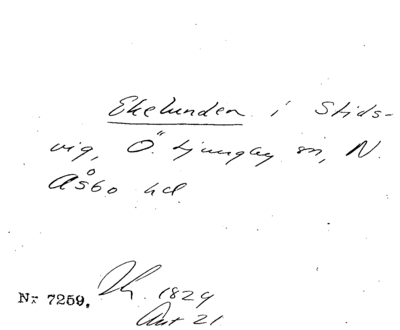 Ekelunden i Stids-
vig, Ö. Ljungby sn, N.
Åsbo hd.
Nr 7259. 1829
Akt 21